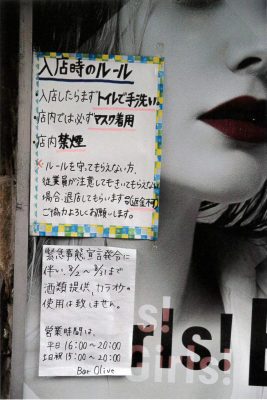 入店時のルール
・入店したらまずトイレで手洗い
・店内では必ずマスク着用
・店内禁煙
※ルールを守ってもらえない方、
従業員が注意してもきいてもらえない
場合、退店してもらいます
ご協力よろしくお願いします。
緊急事態宣言発令に
伴い、8/2～8/31まで
酒類提供、カラオケの
使用は致しません。
営業時間は、
平日 16:00～20:00
土日祝 15:00～20:00
Bar Olive
s!
rls!
Girls!